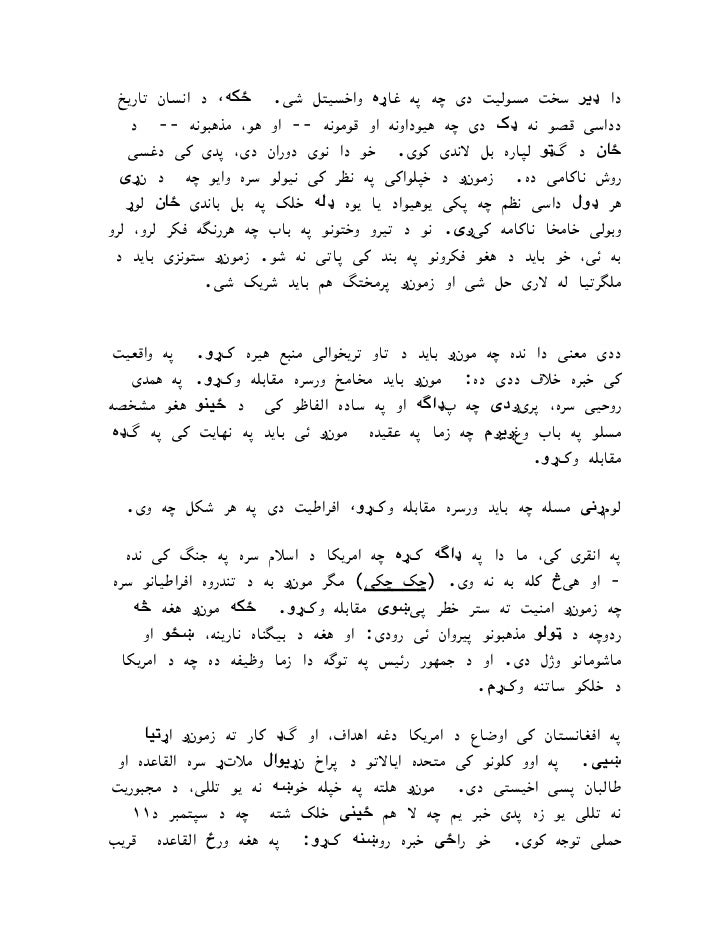 دا ډیر سخت مسولیت دی چه په غاړه واخسیتل شی. ځکه، د انسان تاریخ
دداسی قصو نه ډک دی چه هیوداونه او قومونه -- او هو، مذهبونه -- د
ځان د گټو لپاره بل لاندی کوی. خو دا نوی دوران دی، پدی کی دغسی
روش ناکامی ده. زمونږ د خپلواکی په نظر کی نیولو سره وایو چه د نړۍ
هر ډول داسی نظم چه پکی یوهیواد یا یوه ډله خلک په بل باندی ځان لوړ
وبولی خامخا ناکامه کیږی. نو د تیرو وختونو په باب چه هررنگه فکر لرو، لرو
به ئی، خو باید د هغو فکرونو په بند کی پاتی نه شو. زمونږ ستونزی باید د
ملگرتیا له لاری حل شی او زمونږ پرمختگ هم باید شریک شی.
ددی معنی دا نده چه مونږ باید د تاو تریخوالی منبع هیره کړو. په واقعیت
کی خبره خلاف ددی ده: مونږ باید مخامخ ورسره مقابله وکړو. په همدی
روحیی سره، پریږدی چه پډاگه او په ساده الفاظو کی د ځینو هغو مشخصه
مسلو په باب وغږیږم چه زما په عقیده مونږ ئی باید په نهایت کی په گډه
مقابله وکړو.
لومړنی مسله چه باید ورسره مقابله وکړو، افراطیت دی په هر شکل چه وی.
په انقری کی، ما دا په ډاگه کړه چه امریکا د اسلام سره په جنگ کی نده
- او هیڅ کله به نه وی. (چک چکی) مگر مونږ به د تندروه افراطیانو سره
چه زمونږ امنیت ته ستر خطر پیښوی مقابله وکړو. ځکه مونږ هغه څه
ردوچه د ټولو مذهبونو پیروان ئی رودی: او هغه د بیگناه نارینه، ښځو او
ماشومانو وژل دی. او د جمهور رئیس په توگه دا زما وظیفه ده چه د امریکا
د خلکو ساتنه وکړم.
په افغانستان کی اوضاع د امریکا دغه اهداف، او گډ کار ته زمونږ اړتیا
ښیی. په اوو کلونو کی متحده ایالاتو د پراخ نړیوال ملاتړ سره القاعده او
طالبان پسی اخیستی دی. مونږ هلته په خپله خوښه نه یو تللی، د مجبوریت
نه تللی یو زه پدی خبر یم چه لا هم ځینی خلک شته چه د سپتمبر د۱۱
حملی توجه کوی. خو راځی خبره روښنه کړو: په هغه ورځ القاعده قریب